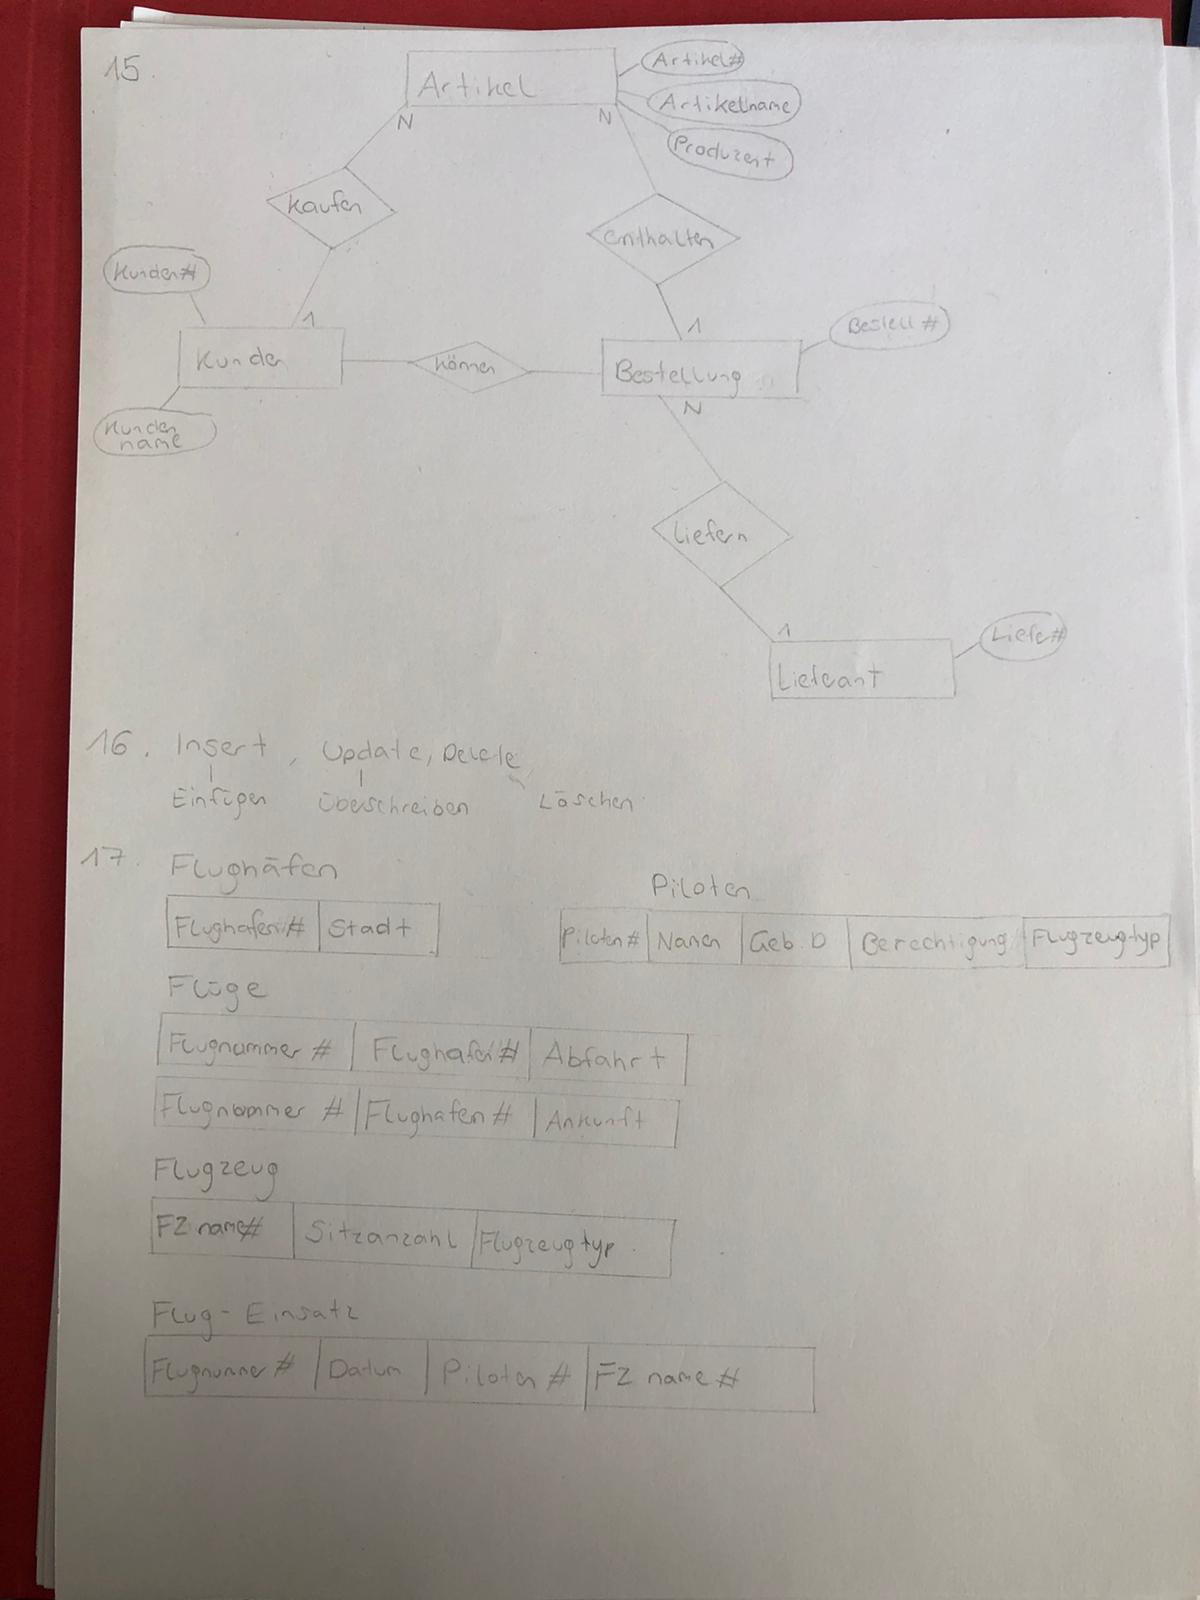 15.
Artikel
Artikel#
Artikelname
Produzent
N
N
kaufen
enthalten
Kunden#
1
1
Bestell #
Kunden
können
Bestellung
Kunden
name
N
Liefern
1
Liefe#
Lieferant
16. Insert, Update, Delete
Einfügen Überschreiben Löschen
17. Flughäfen
Flughafen# Stadt
Piloten
Piloten# Namen Geb. D Berechtigung Flugzeugtyp
Flüge
Flugnummer # Flughafen# Abfahrt
Flugnummer # Flughafen # Ankunft
Flugzeug
FZ name# Sitzanzahl Flugzeugtyp
Flug-Einsatz
Flugnummer # Datum Piloten # FZ name #